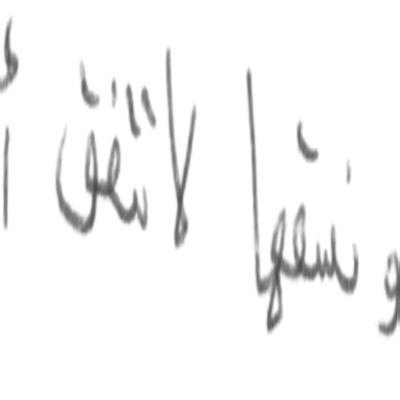 ونسقها لا تتفق أ